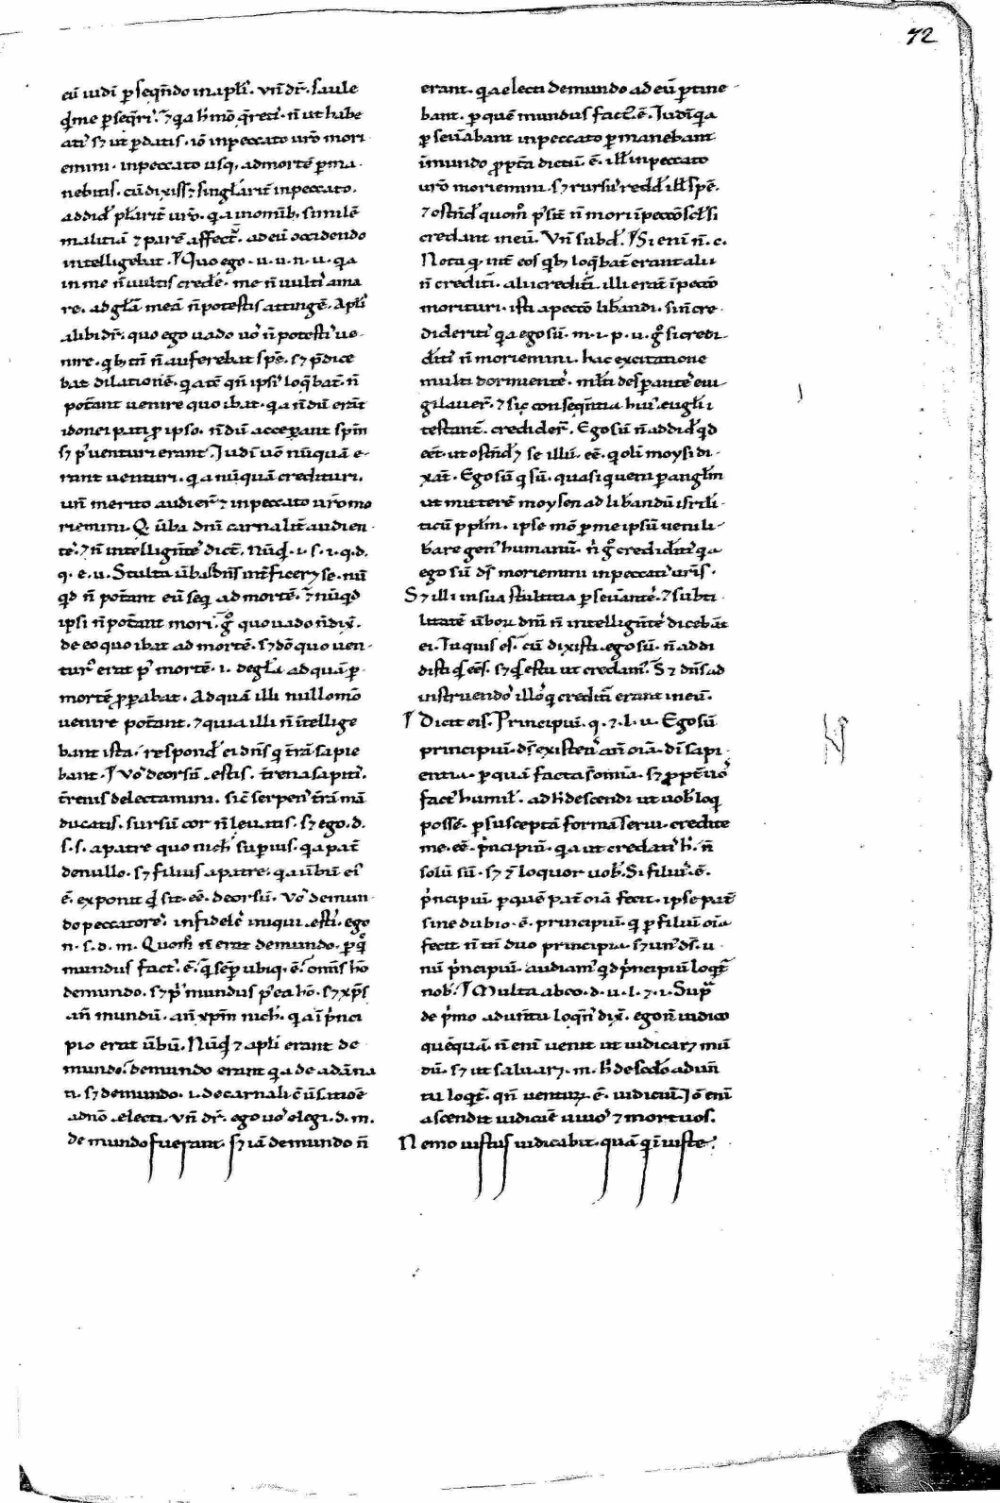 72
eū iudī ꝑseqn̄do in apl̄is. Vn̄ dr̄. Saule
qͥd me ꝑseqr̄is. ⁊ qa h̄ mō q̄retis. n̄ ut habe
atis sꝫ ut ꝑdatis. iō in peccato ur̄o mori
emini. in peccato usqꝫ ad mortē ꝑma
nebitis. cū dixissꝫ singularit̄ in peccato.
addid̄ plurarit̄ ur̄o. qa in omībꝫ similē
malitiā ⁊ parē affectū. ad eū occidendo
intelligebat. Quo ego. u. u. n. u. qa
in me n̄ uultis crede. me n̄ uultis ama
re. ad gl̄am meā n̄ potestis attingē. Apl̄is
alibi dr̄. quo ego uado uos n̄ potestis ue
nire. qbꝫ tn̄ n̄ auferebat spē. sꝫ p̄dice
bat dilationē. qa tē qn̄ ipsis loq̄bat̄. n̄
potant uenire quo ibat. qa n̄dū erāt
idonei pati ꝑ ipso. n̄dū acceperant spm̄
sꝫ pꝰ uenturi erant. Iudī uō nūquā e
rant uenturi. qa nūquā credituri.
un̄ merito audier̄ ⁊ in peccato ur̄o mo
riemini. Q uerba dn̄i carnalit̄ audien
tes. ⁊ n̄ intellign̄tes dicūt. Nūqͥd. i. s. i. q. d.
q. e. u. Stulta uerba dn̄s int̄ficerꝫ se. nū
qd n̄ potant eū seq ad mortē. ⁊ nūqd
ipsi n̄ potant mori. g̊ quo uado n̄ dix̄.
de eo quo ibat ad mortē. sꝫ dō quo uen
turꝰ erat pꝰ mortē. i. de gl̄a ad quā ꝑ
mortē ꝓꝑabat. Ad quā illi nullo mō
uenire potant. ⁊ quia illi n̄ intellige
bant ista. respond̄ eis dn̄s q t̄rā sapie
bant. Vos deorsū estis. terrena sapitis.
terrenis delectamini. sic̄ serpens t̄rā mā
ducatis. sursū cor n̄ leuatis. sꝫ ego. d.
s. s. a patre quo nich̄ superius. qa pat̄
de nullo. sꝫ filius a patre. qa uerbū eiꝰ
ē. exponit qͥd sit. eē. deorsū. Vos de mun
do peccatores. infideles iniqui estis. ego
n. s. d. m. Quom̄ n̄ erat de mundo. ꝑ quē
mundus factꝰ ē. qͥ sēp ubiqꝫ ē. Omīs hō
de mundo. sꝫ pͥꝰ mundus pꝰ ea hō. sꝫ xp̄s
añ mundū. añ xp̄m nich̄. qa ī pͥnci
pio erat uerbū. Nūqͥd ⁊ apl̄i erant de
mundo. de mundo erant qa de adā na
ti. sꝫ de mundo. i. de carnali cōuersatioē
a dn̄o electi. Vn̄ dr̄. ego uos elegi. d. m.
de mundo fuerant. sꝫ iā de mundo n̄
erant. qa electi de mundo ad eū ꝑtine
bant. ꝑ quē mundus factꝰ ē. Iudī qa
ꝑseuerabant in peccato ꝑmanebant
in mundo ꝓpterea dictū ē. illis in peccato
ur̄o moriemini. sꝫ rursū redd̄ illis spē.
⁊ ostēd̄ quom̄ possūt n̄ mori in peccō si
credant in eū. Vn̄ subd̄. Si enī n̄. c.
Nota qͥ int̄ eos qbꝫ loq̄bat̄ erant alii
n̄ credituri. alii credituri. illi erāt in pecco
morituri. isti a pecco liberandi. si n̄ cre
dideritis qa ego sū. m. i. p. u. g̊ si credi
deritis n̄ moriemini. hac excitatione
multi dormientes. multi desperantes eui
gilauer̄. ⁊ sic consequentia huiꝰ euglii
testantur. crediderunt. Ego sū n̄ addid̄ qd
eēt. ut ostend̄ꝫ se illū. eē. q oli moysi di
xerat. Ego sū q sū. quasi quem ꝑ anglm̄
ut mitterē moysen ad liberandū isrl̄i
ticū pplm̄. ipse mō ꝑ me ipsū ueni li
berare genꝰ humanū. n̄ g̊ credideritis qa
ego sū ds̄ moriemini in peccatis ur̄is.
Sꝫ illi in sua stultitia ꝑseuerantes. ⁊ subti
litatē uerbor̄ dn̄i n̄ intelligentes dicebāt
ei. Tu quis es. cū dixisti. ego sū. n̄ addi
disti qͥd eēs. sꝫ qͥd es tu ut credamꝰ. Sꝫ dn̄s ad
instruendos illos q credituri erant in eū.
Dicit eis. Principiū. q. ⁊ l. u. Ego sū
principiū. ds̄ existens añ oīa. di sapi
entia. ꝑ quā facta sūt oīa. sꝫ ꝓpter uos
factꝰ humil̄. ad h̄ descendi ut uobis loq
possē. ꝑ susceptā formā serui. credite
me eē pͥncipiū. qa ut credatis h̄. n̄
solū sū. sꝫ ⁊ loquor uobis. Si filiꝰ ē
pͥncipiū. ꝑ quē pat̄ oīa fecit. ipse pat̄
sine dubio ē principiū. q ꝑ filiū oīa
fecit. n̄ tn̄ duo principia. sꝫ unꝰ ds̄. u
nū pͥncipiū. audiamꝰ qd pͥncipiū loqt̄
nobis. Multa abeo. d. u. l. ⁊ i. Supͣ
de pͥmo aduentu loqn̄s dix̄. ego n̄ iudico
quēquā. n̄ enī uenit ut iudicarꝫ mū
dū. sꝫ ut saluarꝫ. m. h̄ de secundo aduen
tu loqt̄. qn̄ uenturꝰ ē. iudiciū. Iō enī
ascendit iudicare uiuos ⁊ mortuos.
Nemo iustiꝰ iudicabit. quā qͥ iuste